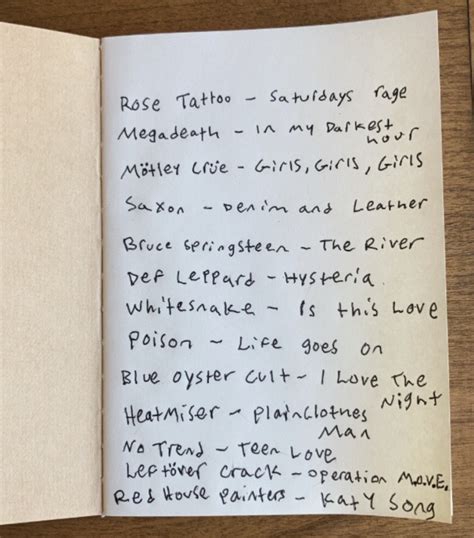 Rose Tattoo - Saturdays rage
Megadeath - in my Darkest
hour
Mötley Crüe - Girls, Girls, Girls
Saxon - Denim and Leather
Bruce Springsteen - The River
Def Leppard - Hysteria
Whitesnake - Is this Love
Poison - Life goes on
Blue oyster Cult - I Love The
Night
Heatmiser - Plainclothes
Man
No Trend - Teen Love
Leftöver Crack - operation M.O.V.E.
Red House Painters - Katy Song